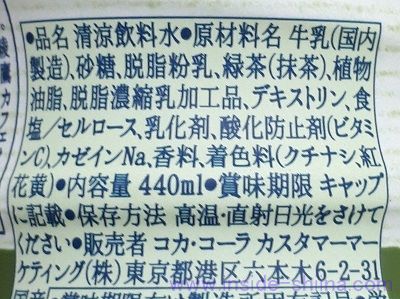 •品名 清涼飲料水•原材料名 牛乳(国内
製造)、砂糖、脱脂粉乳、緑茶(抹茶)、植物
油脂、脱脂濃縮乳加工品、デキストリン、食
塩/セルロース、乳化剤、酸化防止剤(ビタミ
ンC)、カゼインNa、香料、着色料(クチナシ、紅
花黄)•内容量 440ml•賞味期限 キャップ
に記載•保存方法 高温・直射日光をさけて
ください•販売者 コカ・コーラ カスタマーマー
ケティング(株) 東京都港区六本木6-2-31